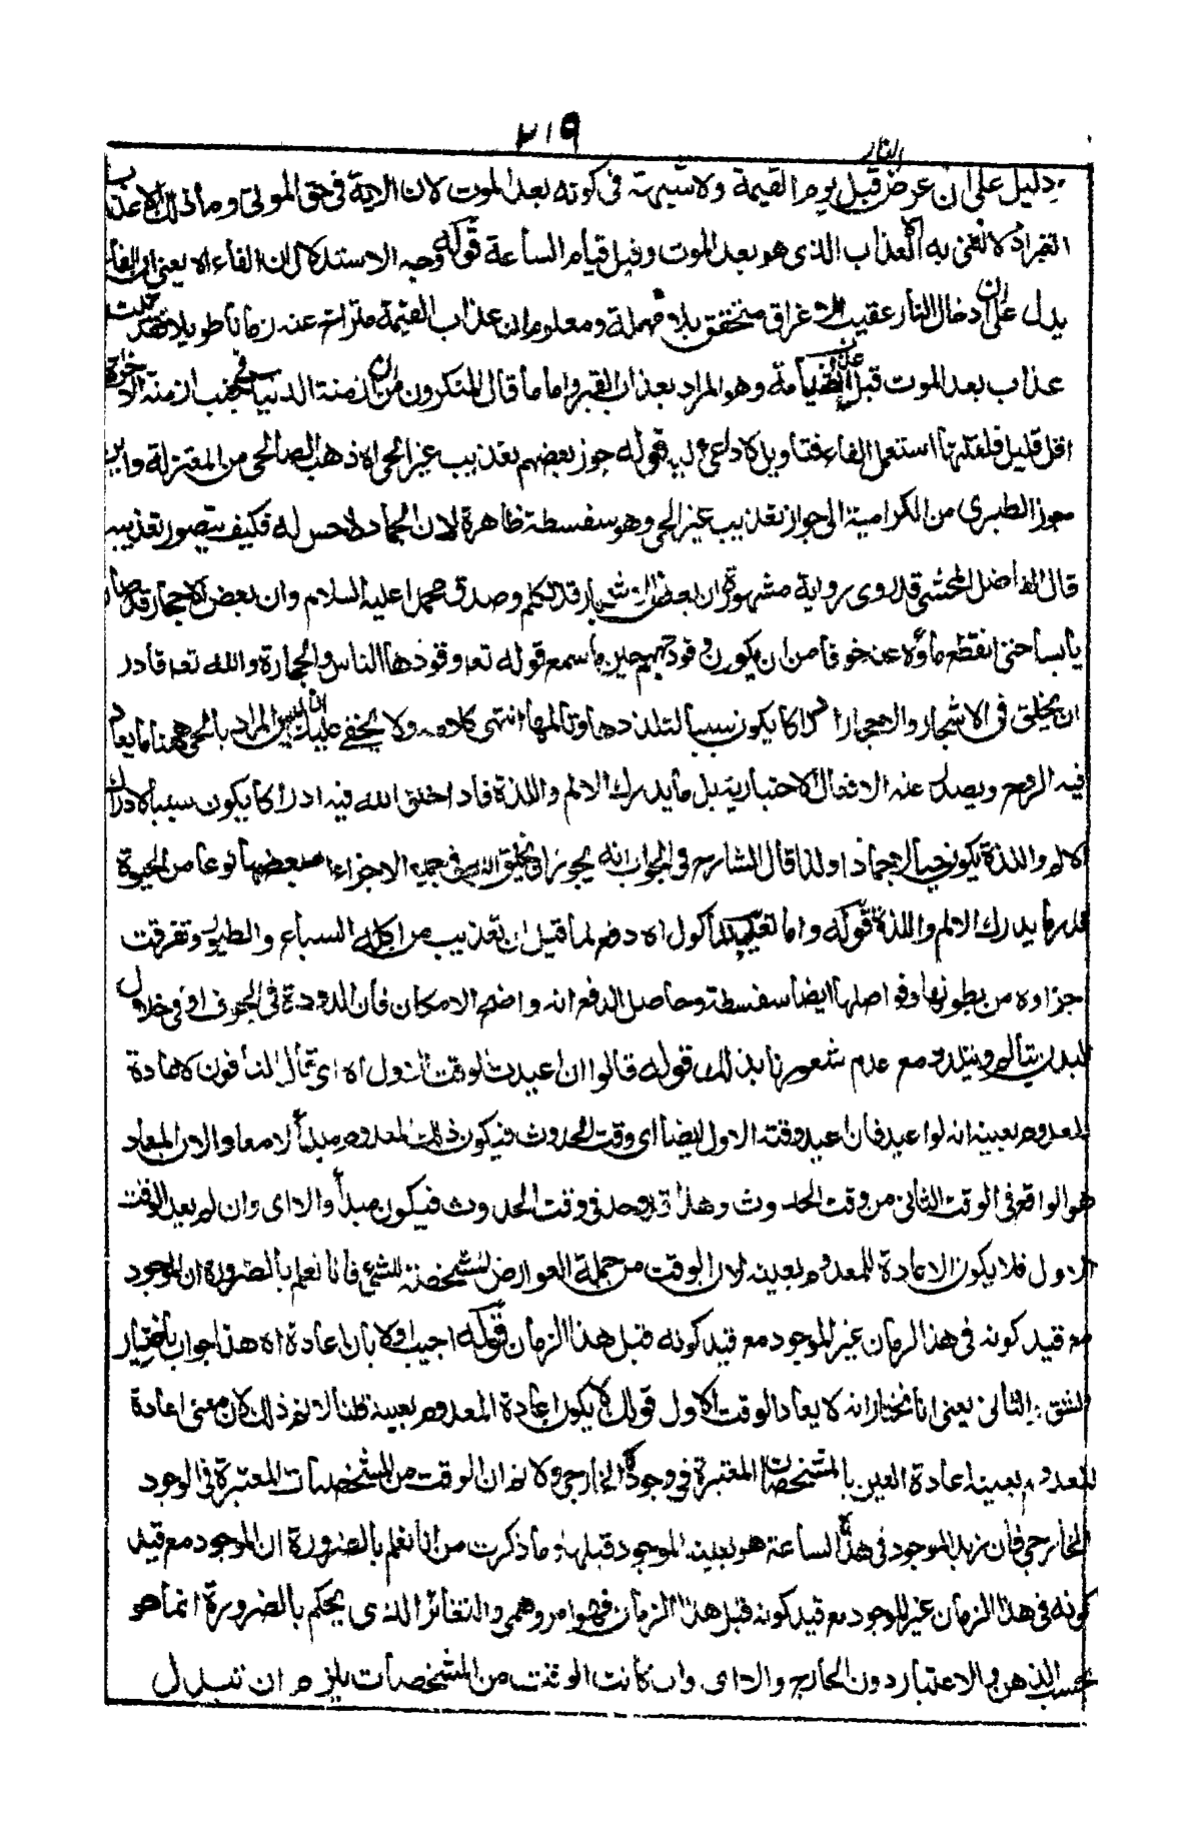 ٢١٩
النار
دليل على ان عرض قبل يوم القيمة ولا شبهة فى كونه بعد الموت لان الاية فى حق الموتى وما ذلك الا عذاب
القبر اذ لا نعنى به الا العذاب الذى هو بعد الموت وقبل قيام الساعة قوله وجه الاستدلال ان الفاء اه يعنى ان الفاء
يدل على ان دخال النار عقيب الاغراق متحقق بلا مهملة ومعلوم ان عذاب القيمة متراخ عنه زمانا طويلا
عذاب بعد الموت قبل القيامة وهو المراد بعذاب القبر واما ما قال المنكرون من ان ازمنة الدنيا فى جنب ازمنة الاخرة
اقل قليل فلقلتها استعمل الفاء فتاويل لا داعى اليه قوله جوز بعضهم تعذيب غير الحى اه ذهب الصالحى من المعتزلة وابن
جوز الطبرى من الكرامية الى جواز تعذيب غير الحى وهو سفسطة ظاهرة لان الجماد لا حس له فكيف يتصور تعذيبه
قال الفاضل المحشى قد روى رواية مشهورة ان بعض الاشجار قد تكلم وصدق محمدا عليه السلام وان بعض الاحجار قد صار
يابسا حتى انقطع ماؤه عنه خوفا من ان يكون وقود جهنم حين ما سمع قوله تعه وقودها الناس والحجارة والله تعه قادر
ان يخلق فى الاشجار والاحجار ادراكا يكون سببا لتلذذها وتالمها انتهى كلامه ولا يخفى عليك ان ليس المراد بالحى ههنا ما يعاد
فيه الروح ويصدر عنه الافعال الاختيارية بل ما يدرك الالم واللذة فاذا خلق الله فيه ادراكا يكون سببا لادراك
الالم واللذة يكون حيا لا جمادا ولذا قال الشارح فى الجواب انه يجوز ان يخلق الله فى جميع الاجزاء او بعضها نوعا من الحيوة
قدر ما يدرك الالم واللذة قوله واما تعذيب الماكول اه دفع لما قيل ان تعذيب من اكله السباع والطيور وتفرقت
اجزاؤه من بطونها وحواصلها ايضا سفسطة وحاصل الدفع انه واضح الامكان فان الدودة فى الجوف او فى خلال
البدن يتالم ويتلذذ مع عدم شعورنا بذلك قوله قالوا ان اعيدت لوقت الاول اه اى قال النافون لاعادة
المعدوم بعينه انه لو اعيد فان اعيد وقته الاول ايضا اى وقت الحدوث فيكون ذلك المعدوم مبدأ لا معادا لان المعاد
هو الواقع فى الوقت الثانى من وقت الحدوث وهذا قد وجد فى وقت الحدوث فيكون مبدأ والا اى وان لم يعد الوقت
الاول فلا يكون الاعادة للمعدوم بعينه لان الوقت من جملة العوارض المشخصة للشئ فانا نعلم بالضرورة ان الموجود
مع قيد كونه فى هذا الزمان غير الموجود مع قيد كونه قبل هذا الزمان قوله اجيب اولا بان اعادة اه هذا جواب باختيار
الشق الثانى يعنى انا نختار انه لا يعاد الوقت الاول قولك لا يكون اعادة المعدوم بعينه قلنا لا نم ذلك لان معنى اعادة
المعدوم بعينه اعادة العين بالمشخصات المعتبرة فى وجوده الخارجى ولا نم ان الوقت من المشخصات المعتبرة فى الوجود
الخارجى فان زيد الموجود فى هذه الساعة هو بعينه الموجود قبلها وما ذكرت من انا نعلم بالضرورة ان الموجود مع قيد
كونه فى هذا الزمان غير الموجود مع قيد كونه قبل هذا الزمان فهو امر وهمى والتغائر الذى يحكم بالضرورة انما هو
بحسب الذهن والاعتبار دون الخارج والا اى وان كانت الوقت من المشخصات يلزم ان تبدل